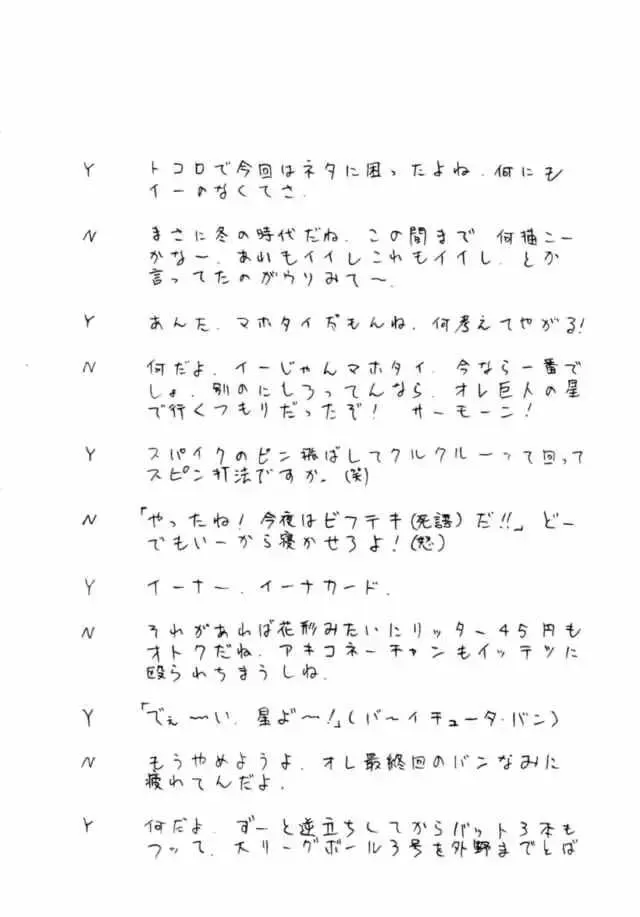 Y トコロで今回はネタに困ったよね、何にも
イーのなくてさ、
N まさに冬の時代だね、この間まで 何描こー
かな〜、あれもイイしこれもイイし、とか
言ってたのがウソみて〜、
Y あんた、マホタイだもんね、何考えてやがる!
N 何だよ、イーじゃんマホタイ、今なら一番で
しょ、別のにしろってんなら、オレ巨人の星
で行くつもりだったぞ! サーモーン!
Y スパイクのピン飛ばしてクルクルーって回って
スピン打法ですか。(笑)
N 「やったね!今夜はビフテキ(死語)だ!!」どー
でもいーから寝かせろよ!(怒)
Y イーナー、イーナカード、
N それがあれば花形みたいにリッター45円も
オトクだね、アキコネーチャンもイッテツに
殴られちまうしね、
Y 「でぇ〜〜い、星よ〜!」(バ〜イチュータ・バン)
N もうやめようよ、オレ最終回のバンなみに
疲れてんだよ、
Y 何だよ、ずーと逆立ちしてからバット3本も
フッて、大リーグボール3号を外野までとば